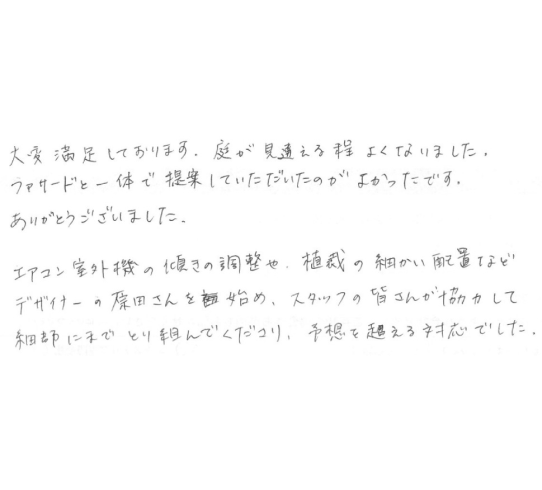 大変満足しております。庭が見違える程よくなりました。
ファサードと一体で提案していただいたのがよかったです。
ありがとうございました。
エアコン室外機の傾きの調整や、植栽の細かい配置など
デザイナーの原田さんを始め、スタッフの皆さんが協力して
細部にまでとり組んでくださり、予想を超える対応でした。